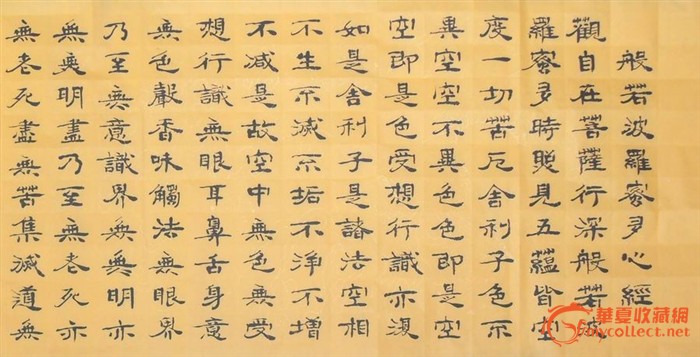 般若波羅密多心經
觀自在菩薩行深般若波
羅密多時照見五蘊皆空
度一切苦厄舍利子色不
異空空不異色色即是空
空即是色受想行識亦復
如是舍利子是諸法空相
不生不滅不垢不淨不增
不減是故空中無色無受
想行識無眼耳鼻舌身意
無色聲香味觸法無眼界
乃至無意識界無無明亦
無無明盡乃至無老死亦
無老死盡無苦集滅道無
華夏收藏網
mycollect.net